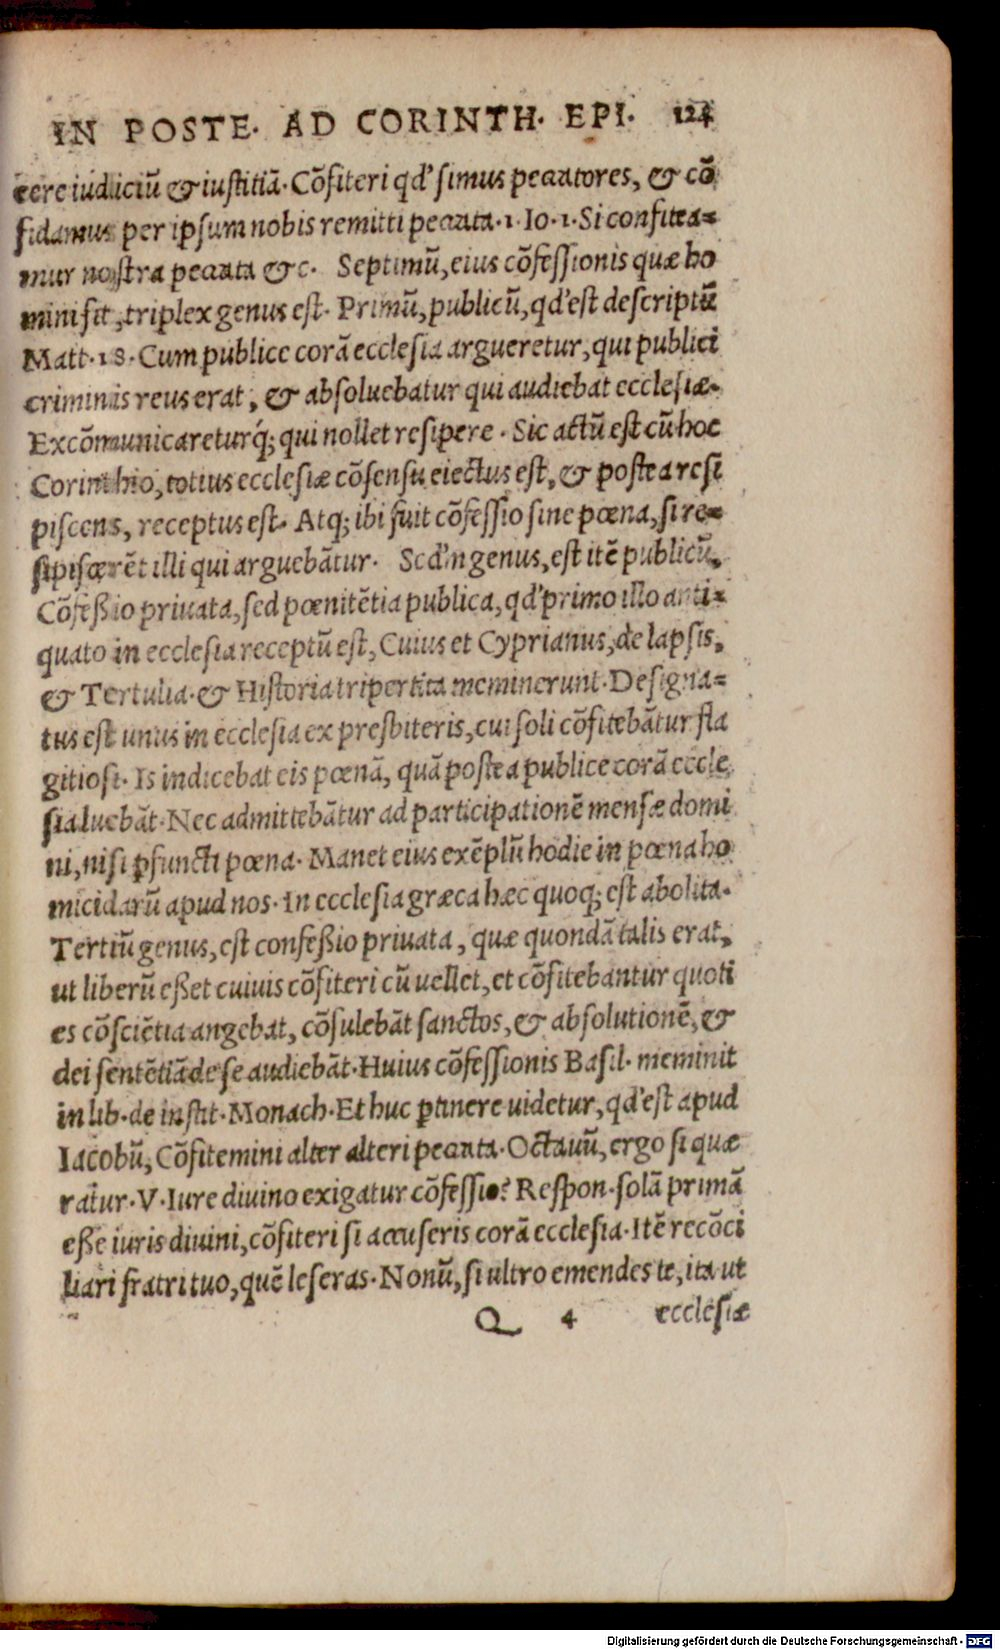 IN POSTE. AD CORINTH. EPI. 124
cere iudiciũ & iustitiã. Cõfiteri qd' simus peccatores, & cõ
fidamus per ipsum nobis remitti peccata. 1. Io. 1. Si confitea=
mur nostra peccata &c. Septimũ, eius cõfessionis quæ ho
mini fit, triplex genus est. Primũ, publicũ, qd' est descriptũ
Matt. 18. Cum publice corã ecclesia argueretur, qui publici
criminis reus erat, & absoluebatur qui audiebat ecclesiæ.
Excõmunicareturq́;, qui nollet resipere. Sic actũ est cũ hoc
Corinthio, totius ecclesiæ cõsensu eiectus est, & postea resi
piscens, receptus est. Atq; ibi fuit cõfessio sine pœna, si re=
sipiscerẽt illi qui arguebãtur. Secd'm genus, est itẽ publicũ,
Cõfeßio priuata, sed pœnitẽtia publica, qd' primo illo anti=
quato in ecclesia receptũ est, Cuius et Cyprianus, de lapsis,
& Tertulia. & Historia tripertita meminerunt. Designa=
tus est unus in ecclesia ex presbiteris, cui soli cõfitebãtur fla
gitiosi. Is indicebat eis pœnã, quã postea publice corã eccle
sia luebãt. Nec admittebãtur ad participationẽ mensæ domi
ni, nisi ꝑfuncti pœna. Manet eius exẽplũ hodie in pœna ho
micidarũ apud nos. In ecclesia græca hæc quoq; est abolita.
Tertiũ genus, est confeßio priuata, quæ quondã talis erat,
ut liberũ eßet cuiuis cõfiteri cũ uellet, et cõfitebantur quoti
es cõsciẽtia angebat, cõsulebãt sanctos, & absolutionẽ, &
dei sentẽtiã de se audiebãt. Huius cõfessionis Basil. meminit
in lib. de instit. Monach. Et huc ꝑtinere uidetur, qd' est apud
Iacobũ, Cõfitemini alter alteri peccata. Octauũ, ergo si quæ
ratur. V. Iure diuino exigatur cõfessio? Respon. solã primã
eße iuris diuini, cõfiteri si accuseris corã ecclesia. Itẽ recõci
liari fratri tuo, quẽ leseras. Nonũ, si ultro emendes te, ita ut
Q 4 ecclesiæ
Digitalisierung gefördert durch die Deutsche Forschungsgemeinschaft - DFG